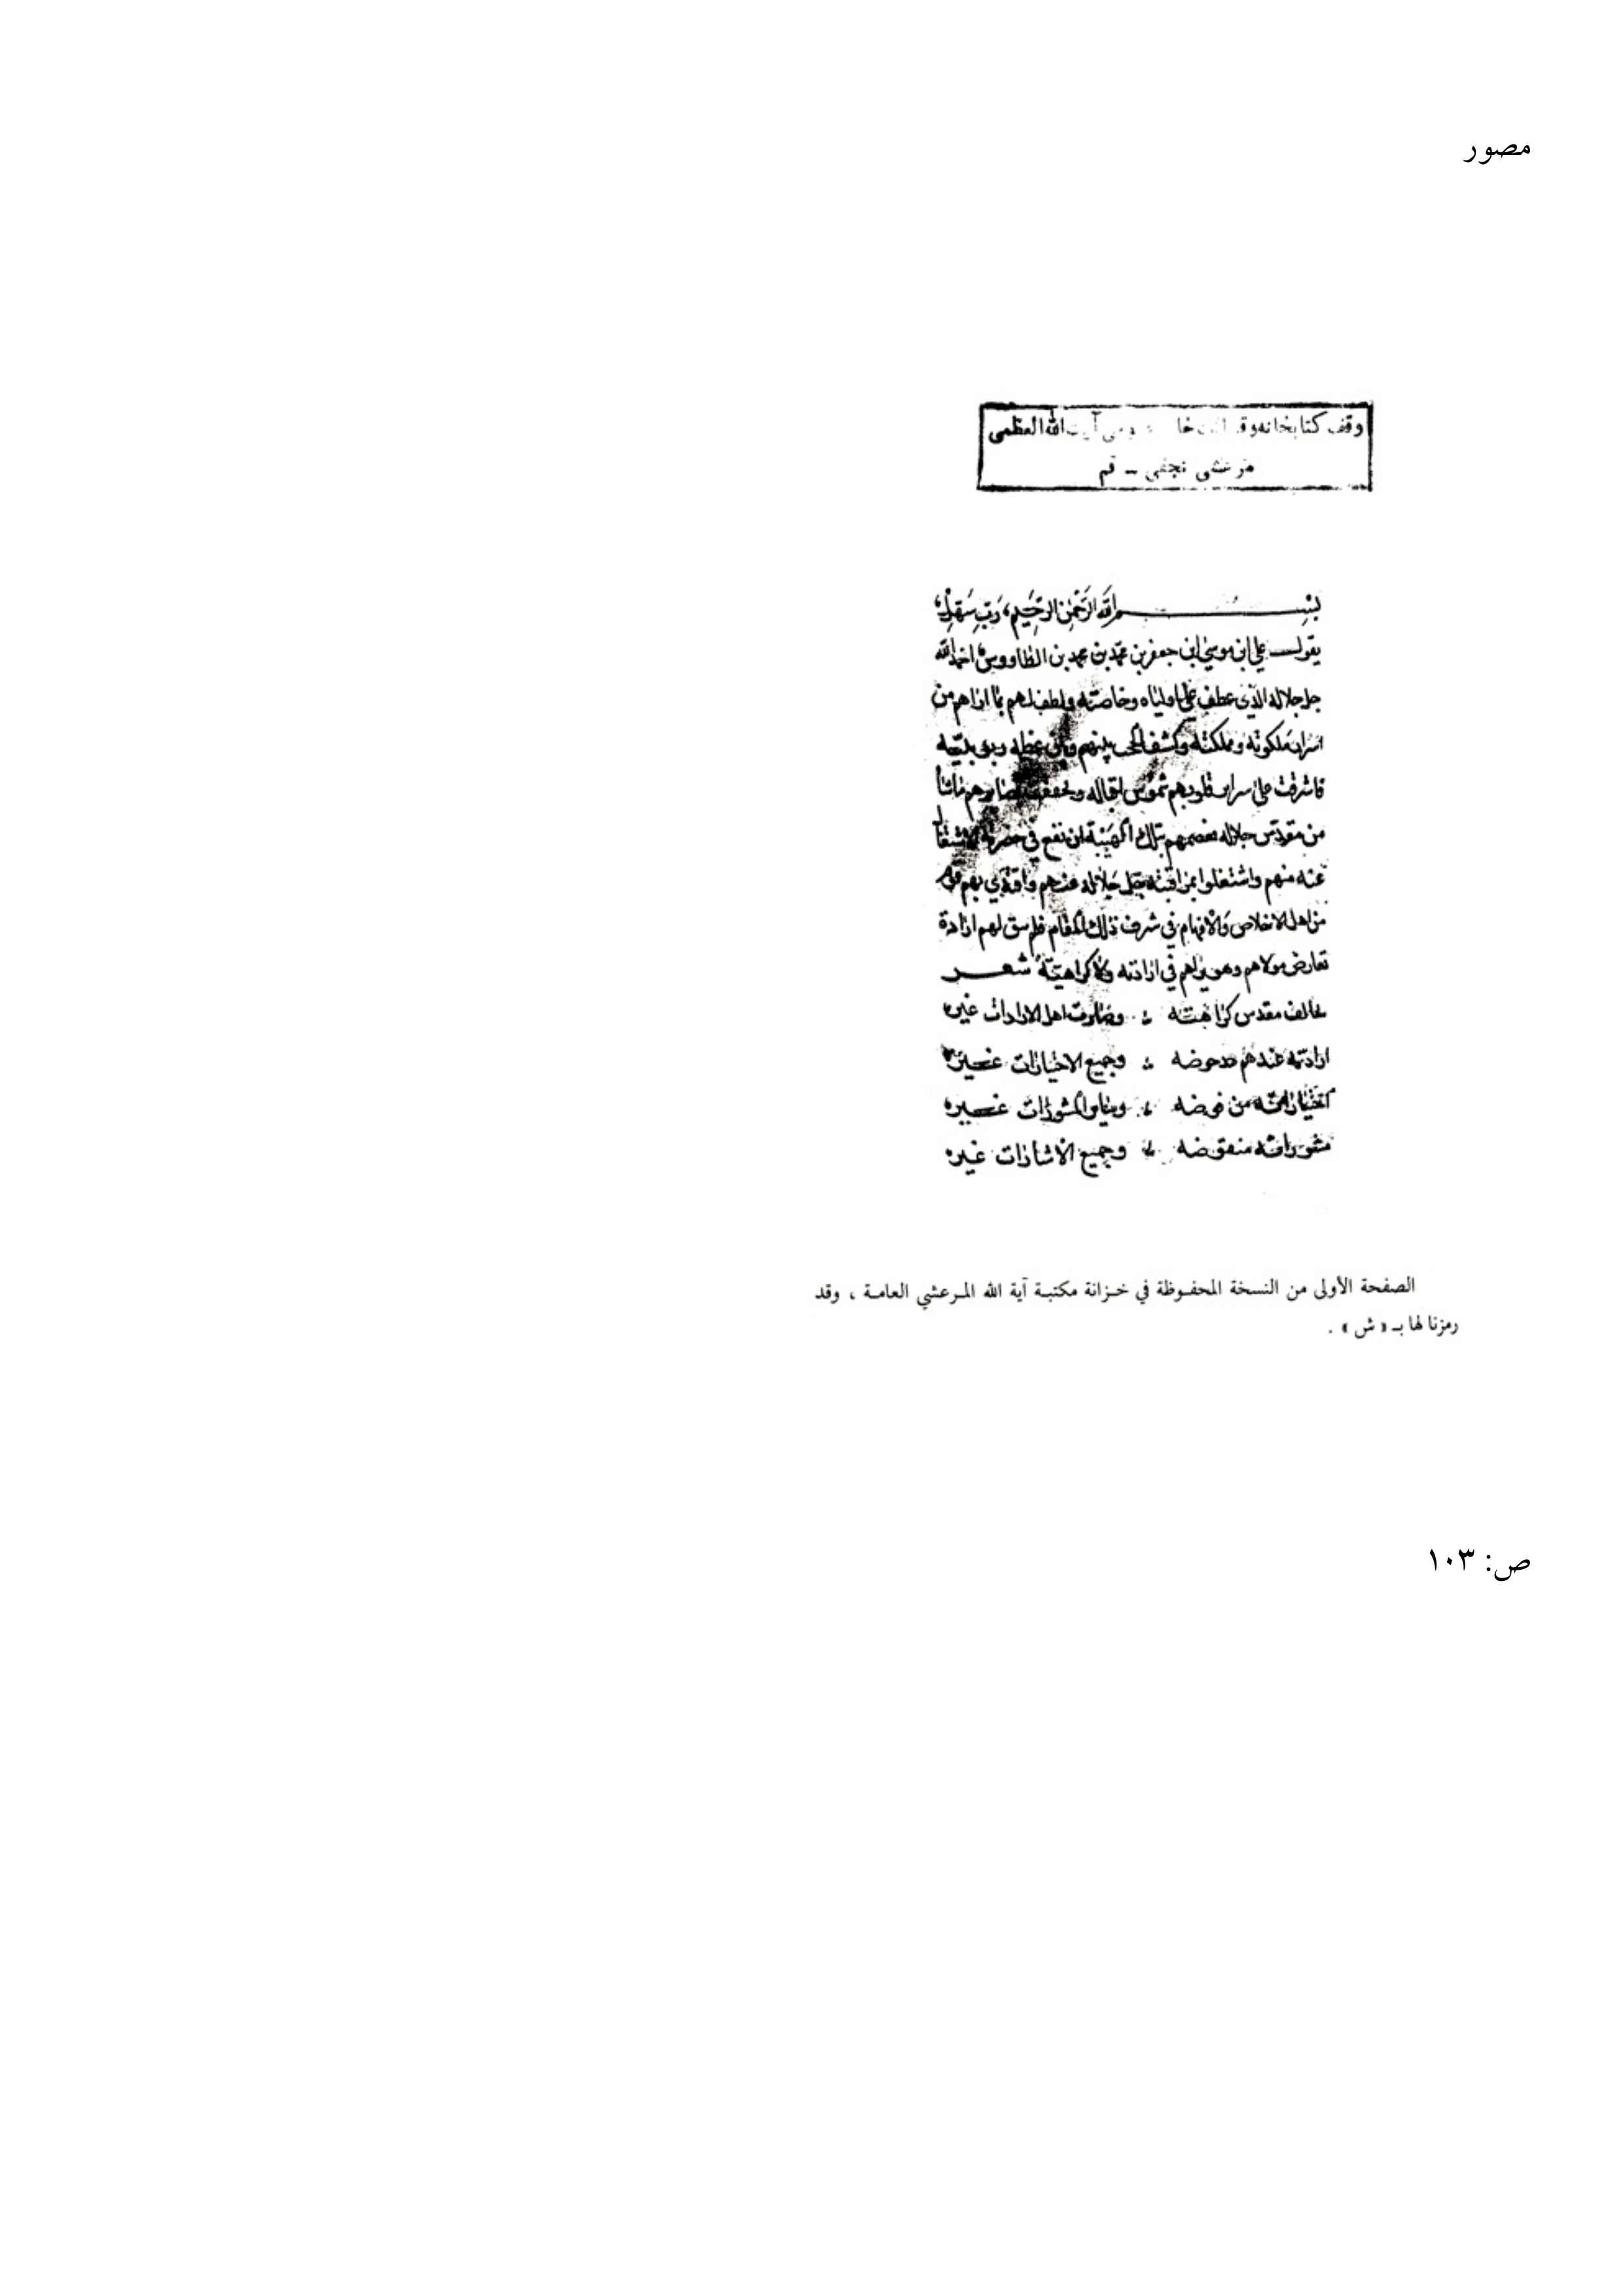 مصور
وقف كتابخانه آيت الله العظمى
مرعشى نجفى - قم
بسم الله الرحمن الرحيم رب سهل
يقول علي ابن موسى ابن جعفر بن محمد بن محمد بن الطاووس احمد الله
جل جلاله الذي عطف على اوليائه وخاصته ولطف لهم بما اراهم من
اسرار ملكوته ومملكته وكشف الحجب بينهم وبين عظمة ربوبيته
فاشرقت على سرائر قلوبهم شموس اقباله وتحققت بصائرهم
من مقدس جلاله فعصمهم بتلك الهيبة ان تقع في حضرته الاشتغال
عنه منهم واشتغلوا بمراقبته جل جلاله عنهم واقتدي بهم قوم
من اهل الاخلاص والافهام في شرف ذلك المقام فلم يبق لهم ارادة
تعارض مولاهم وهو يراهم في ارادته ولا كراهية شعر
تخالف مقدس كراهته وصارت اهل الارادات غير
ارادته عندهم مدحوضه وجميع الاختيارات غير
اختياراته مرفوضه وسائر المشورات غير
مشوراته منقوضه وجميع الاشارات غير
الصفحة الأولى من النسخة المحفوظة في خزانة مكتبة آية الله المرعشي العامة ، وقد
رمزنا لها بـ « ش » .
ص: ١٠٣